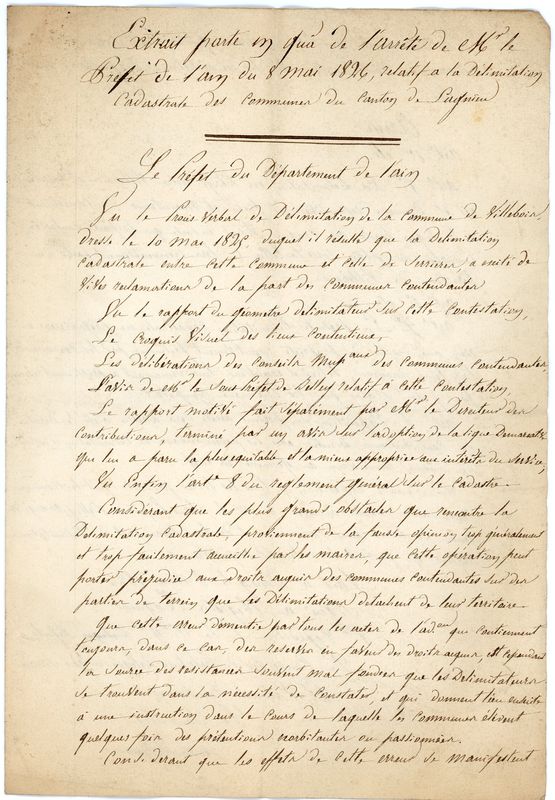 Extrait porté en qu'à de l'arrêté de Mr. le
Préfet de l'ain du 8 mai 1826, relatif a la Délimitation
Cadastrale des communes du canton de Lagnieu
Le Préfet du Département de l'ain
Vu le Procès Verbal de Délimitation de la Commune de Villebois,
dressé le 10 mai 1825, duquel il résulte que la Délimitation
cadastrale entre cette Commune et celle de Serrieres, a excité de
Vives reclamations de la part des Communes contendantes
Vu le rapport du géometre délimitateur sur cette Contestation,
Le Croquis Visuel des lieux Contentieux,
Les délibérations des conseils Mupaux des communes contendantes
L'avis de Mr. le Sous Préfet de Belley relatif à cette Contestation,
Le rapport motivé fait séparément par Mr. le Directeur des
Contributions, terminé par un avis sur l'adoption de la ligne Démarcatve
qui lui a paru la plus équitable et la mieux appropriée aux intérêts du Service,
Vu Enfin l'arte. 8 du reglement général sur le cadastre.
Considérant que les plus grands obstacles que rencontre la
Délimitation Cadastrale, proviennent de la fausse opinion trop généralement
et trop facilement accueillie par les maires, que cette opération peut
porter préjudice aux Droits acquis des communes contendantes sur des
parties de terrein que les Délimitations détachent de leur territoire
Que cette erreur démentie par tous les actes de l'adon qui contiennent
toujours, dans ce cas, des reserves en faveur des droits acquis, est cependant
la Source des résistances souvent mal fondées que les Délimitateurs
se trouvent dans la nécessité de constater, et qui donnent lieu ensuite
à une instruction dans le cours de laquelle les Communes élèvent
quelques fois des prétentions exorbitantes ou passionnées.
Considerant que les effets de cette erreur se manifestent